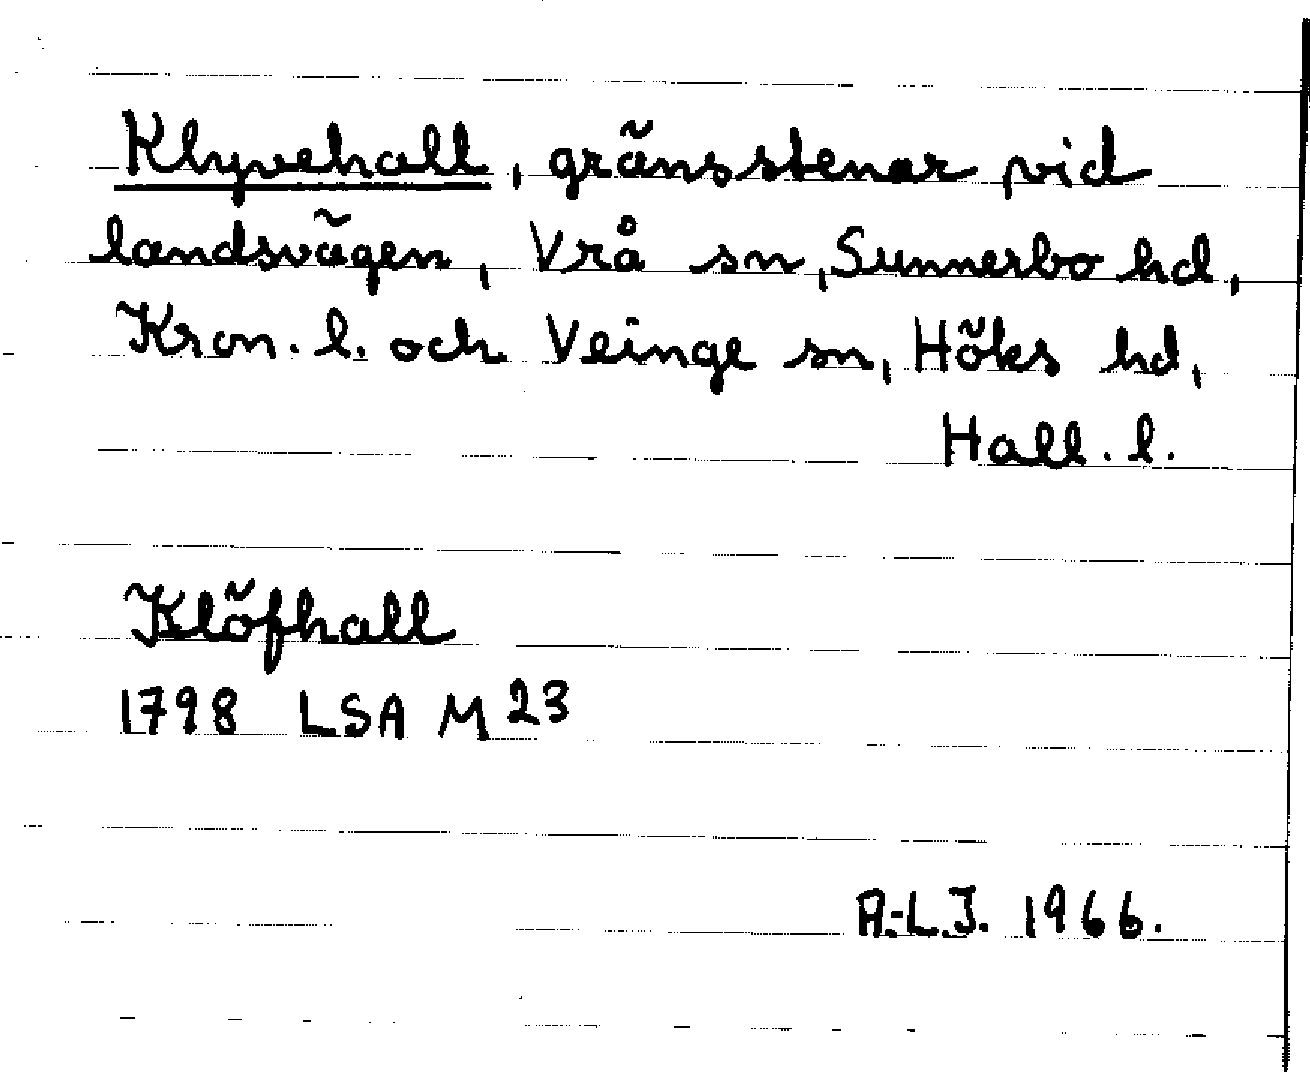 Klyvehall, gränsstenar vid
landsvägen, Vrå sn, Sunnerbo hd,
Kron. l. och Veinge sn, Höks hd,
Hall. l.
Klöfhall
1798 LSA M23
A.-L.J. 1966.